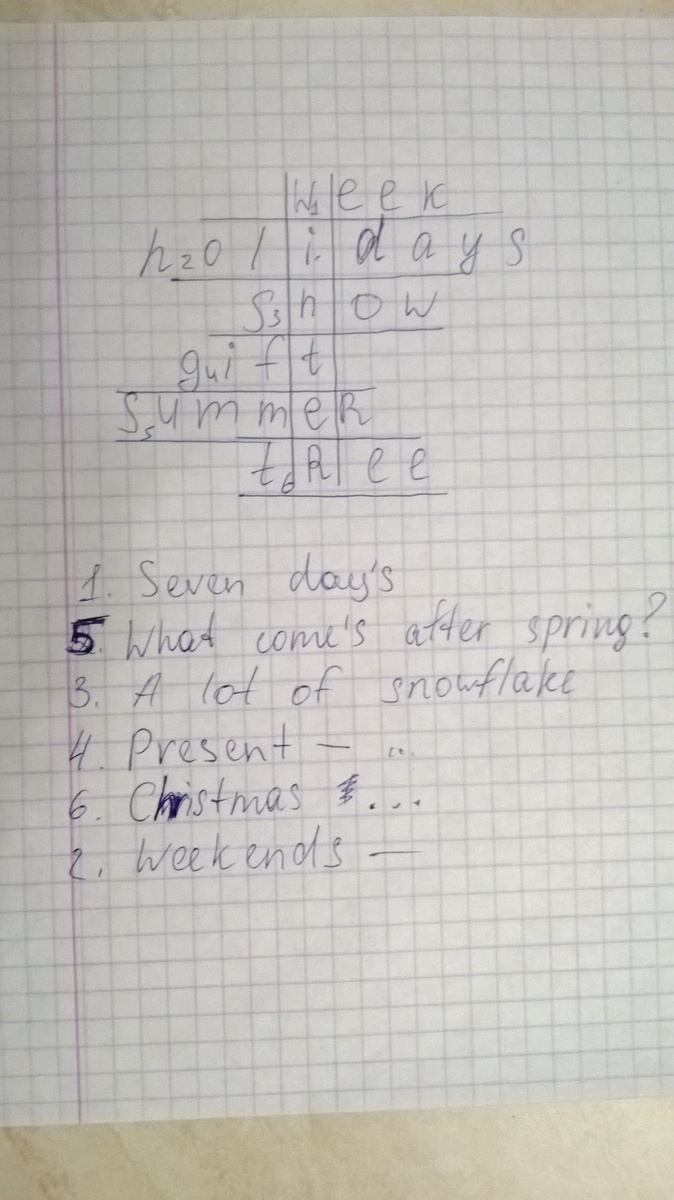 W1eek
h2olidays
S3now
g4ift
S5ummeR
t6Ree
1. Seven day's
5. What come's after spring?
3. A lot of snowflake
4. Present — ...
6. Christmas ...
2. Weekends —